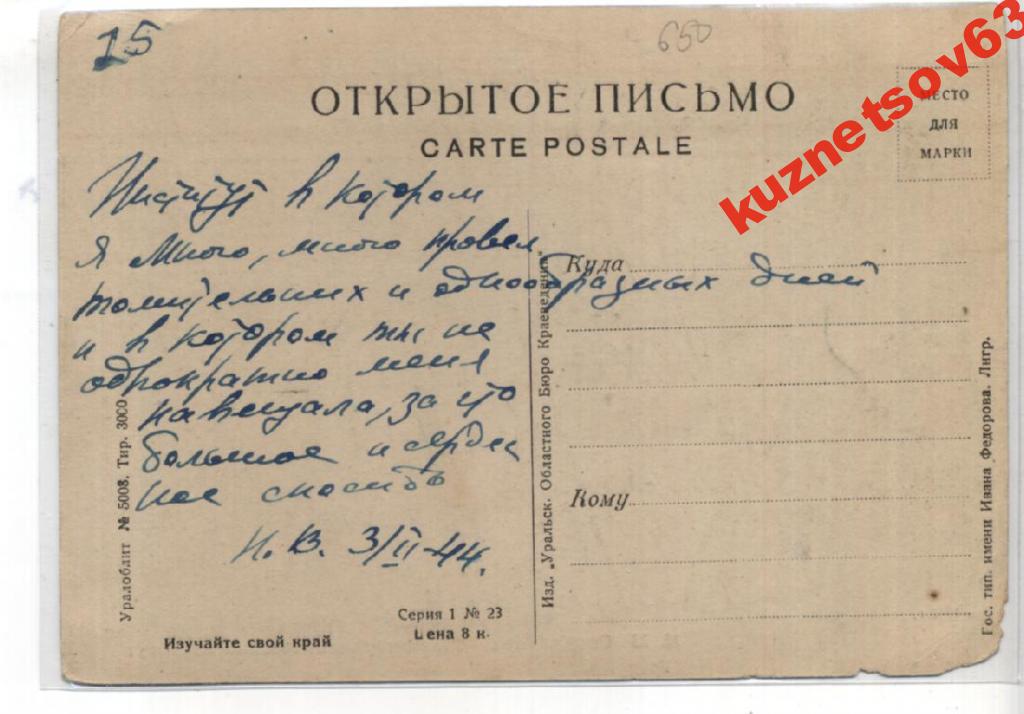 25
650
kuznetsov63
ОТКРЫТОЕ ПИСЬМО
CARTE POSTALE
МЕСТО
ДЛЯ
МАРКИ
Институт в котором
я много, много провел
томительных и однообразных дней
и в котором ты не
однократно меня
навещала, за что
большое и сердеч
ное спасибо
И. В. 3/II-44.
Куда
Кому
Уралоблит № 5008. Тир. 3000
Изд. „Уральск. Областного Бюро Краеведения"
Гос. тип. имени Ивана Федорова. Лнгр.
Серия 1 № 23
Цена 8 к.
Изучайте свой край